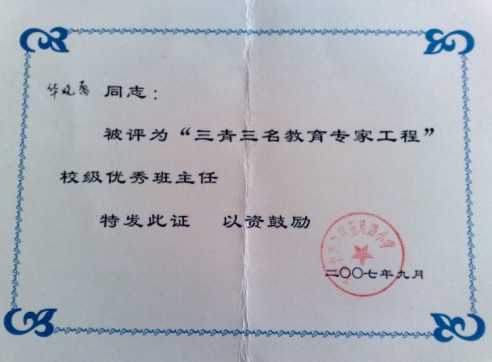 华晓 同志：
被评为“三青三名教育专家工程”
校级优秀班主任
特发此证 以资鼓励
路小学
二〇〇七年九月